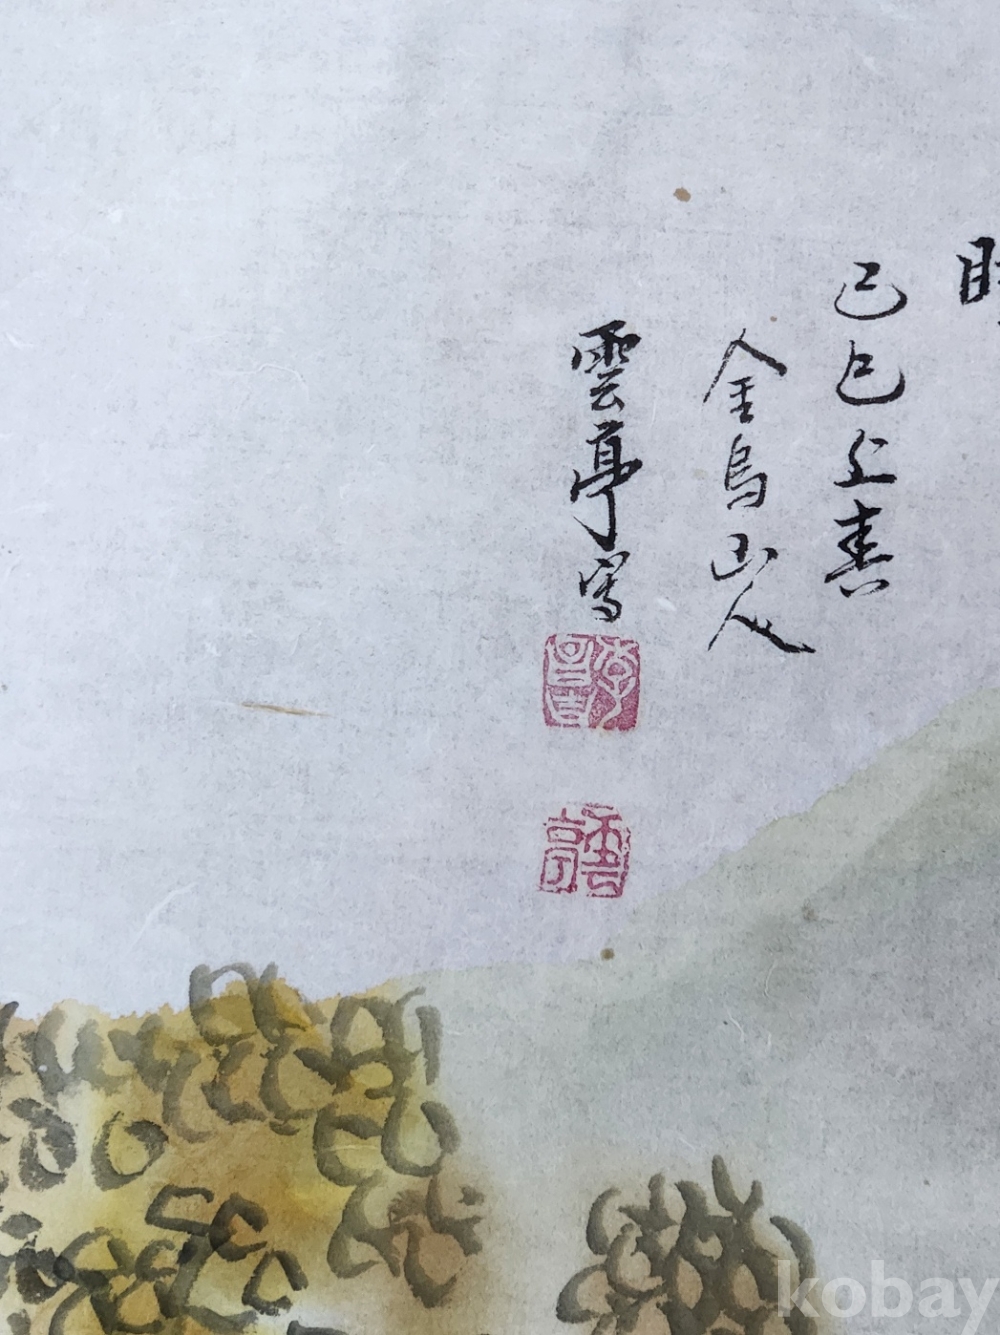 己巳上春
金烏山人
雲亭寫
雲亭
kobay